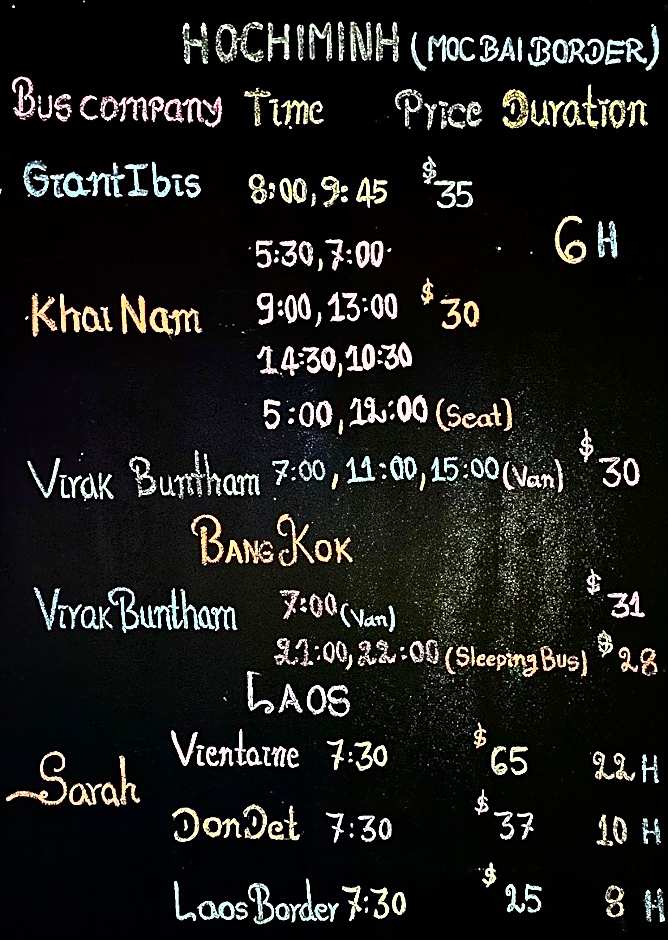 HOCHIMINH (MOC BAI BORDER)
Bus company Time Price Duration
Giant Ibis 8:00, 9:45 $35
5:30, 7:00
6 H
Khai Nam 9:00, 13:00 $30
14:30, 10:30
5:00, 12:00 (Seat)
Virak Buntham 7:00, 11:00, 15:00 (Van) $30
BANGKOK
Virak Buntham 7:00 (Van) $31
21:00, 22:00 (Sleeping Bus) $28
LAOS
Sarah
Vientaine 7:30 $65 22 H
Don Det 7:30 $37 10 H
Laos Border 7:30 $25 8 H